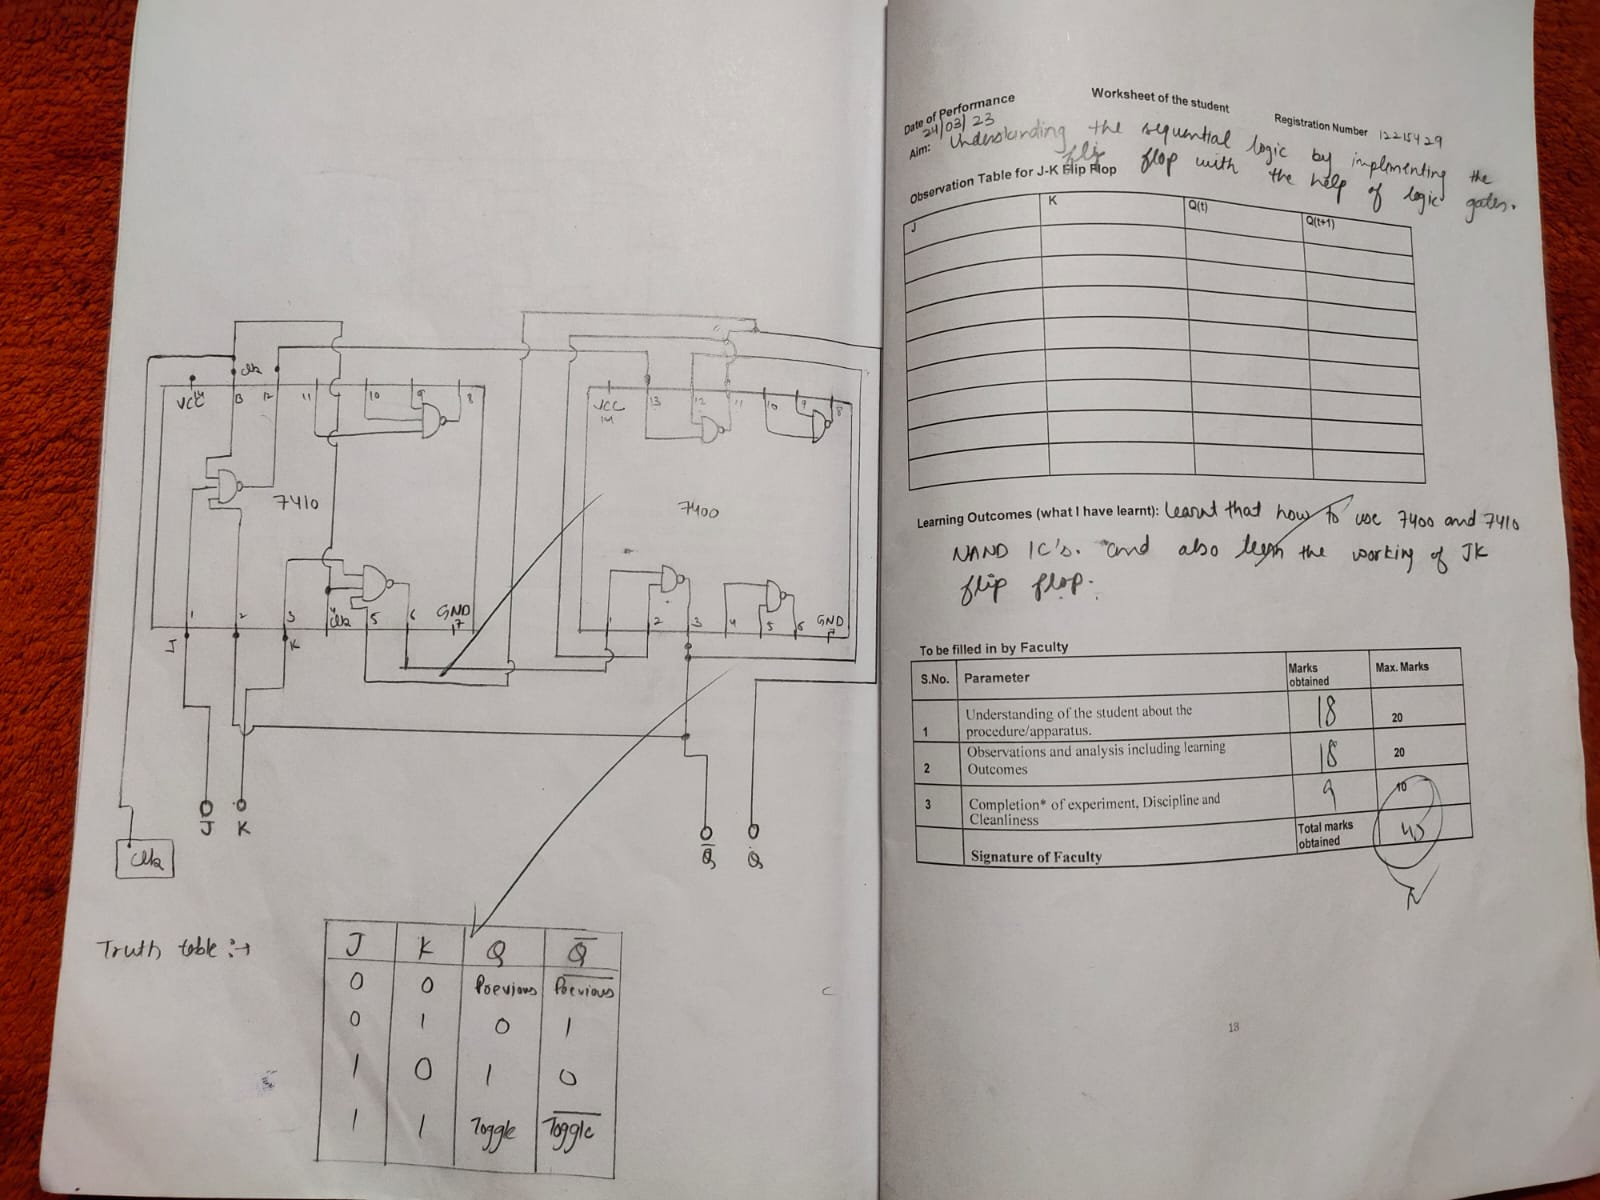 clk
VCC 14 13 12 11 10 9 8
7410
1 2 3 4 clk 5 6 GND 7
J K
VCC 14 13 12 11 10 9 8
7400
1 2 3 4 5 6 GND 7
J K
Q̅ Q
clk
Truth table :→
J K Q Q̅
0 0 Previous Previous
0 1 0 1
1 0 1 0
1 1 Toggle Toggle
Worksheet of the student
Date of Performance
24/03/23
Registration Number 12215429
Aim: Understanding the sequential logic by implementing the
flip flop with the help of logic gates.
Observation Table for J-K Flip Flop
J K Q(t) Q(t+1)
Learning Outcomes (what I have learnt): learnt that how to use 7400 and 7410
NAND IC's. and also learn the working of JK
flip flop.
To be filled in by Faculty
S.No. Parameter Marks obtained Max. Marks
1 Understanding of the student about the procedure/apparatus. 18 20
2 Observations and analysis including learning Outcomes 18 20
3 Completion* of experiment, Discipline and Cleanliness 9 10
Signature of Faculty Total marks obtained 45
13